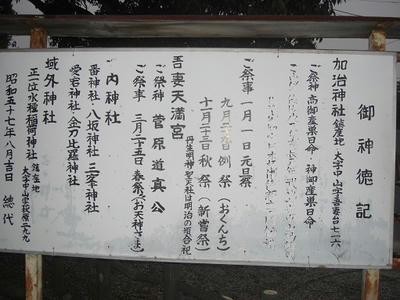 御神徳記
加治神社 鎮座地 大字中山字吾妻台七一六
ご祭神 高御産巣日命 神御産巣日命
ご祭事 一月一日 元旦祭
例祭（おくんち）
十一月二十三日 秋祭（新嘗祭）
丹生明神 聖天社は明治の頃合祀
吾妻天満宮
ご祭神 菅原道真公
ご祭事 三月二十五日 春祭（お天神さま）
内神社
番神社・八坂神社・三峯神社
愛宕神社・金刀比羅神社
域外神社
正一位水種稲荷神社 鎮座地
昭和五十七年八月吉日 総代